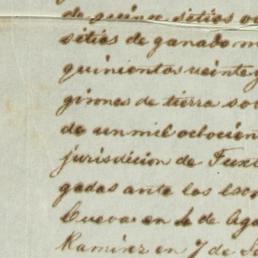 de quince sitios
sitios de ganado m
quinientos veinte y
girones de tierra so
de un mil ochocien
jurisdicion de Tux
gadas ante los Esc
Cueva en 4 de Ago
Ramirez en 7 de